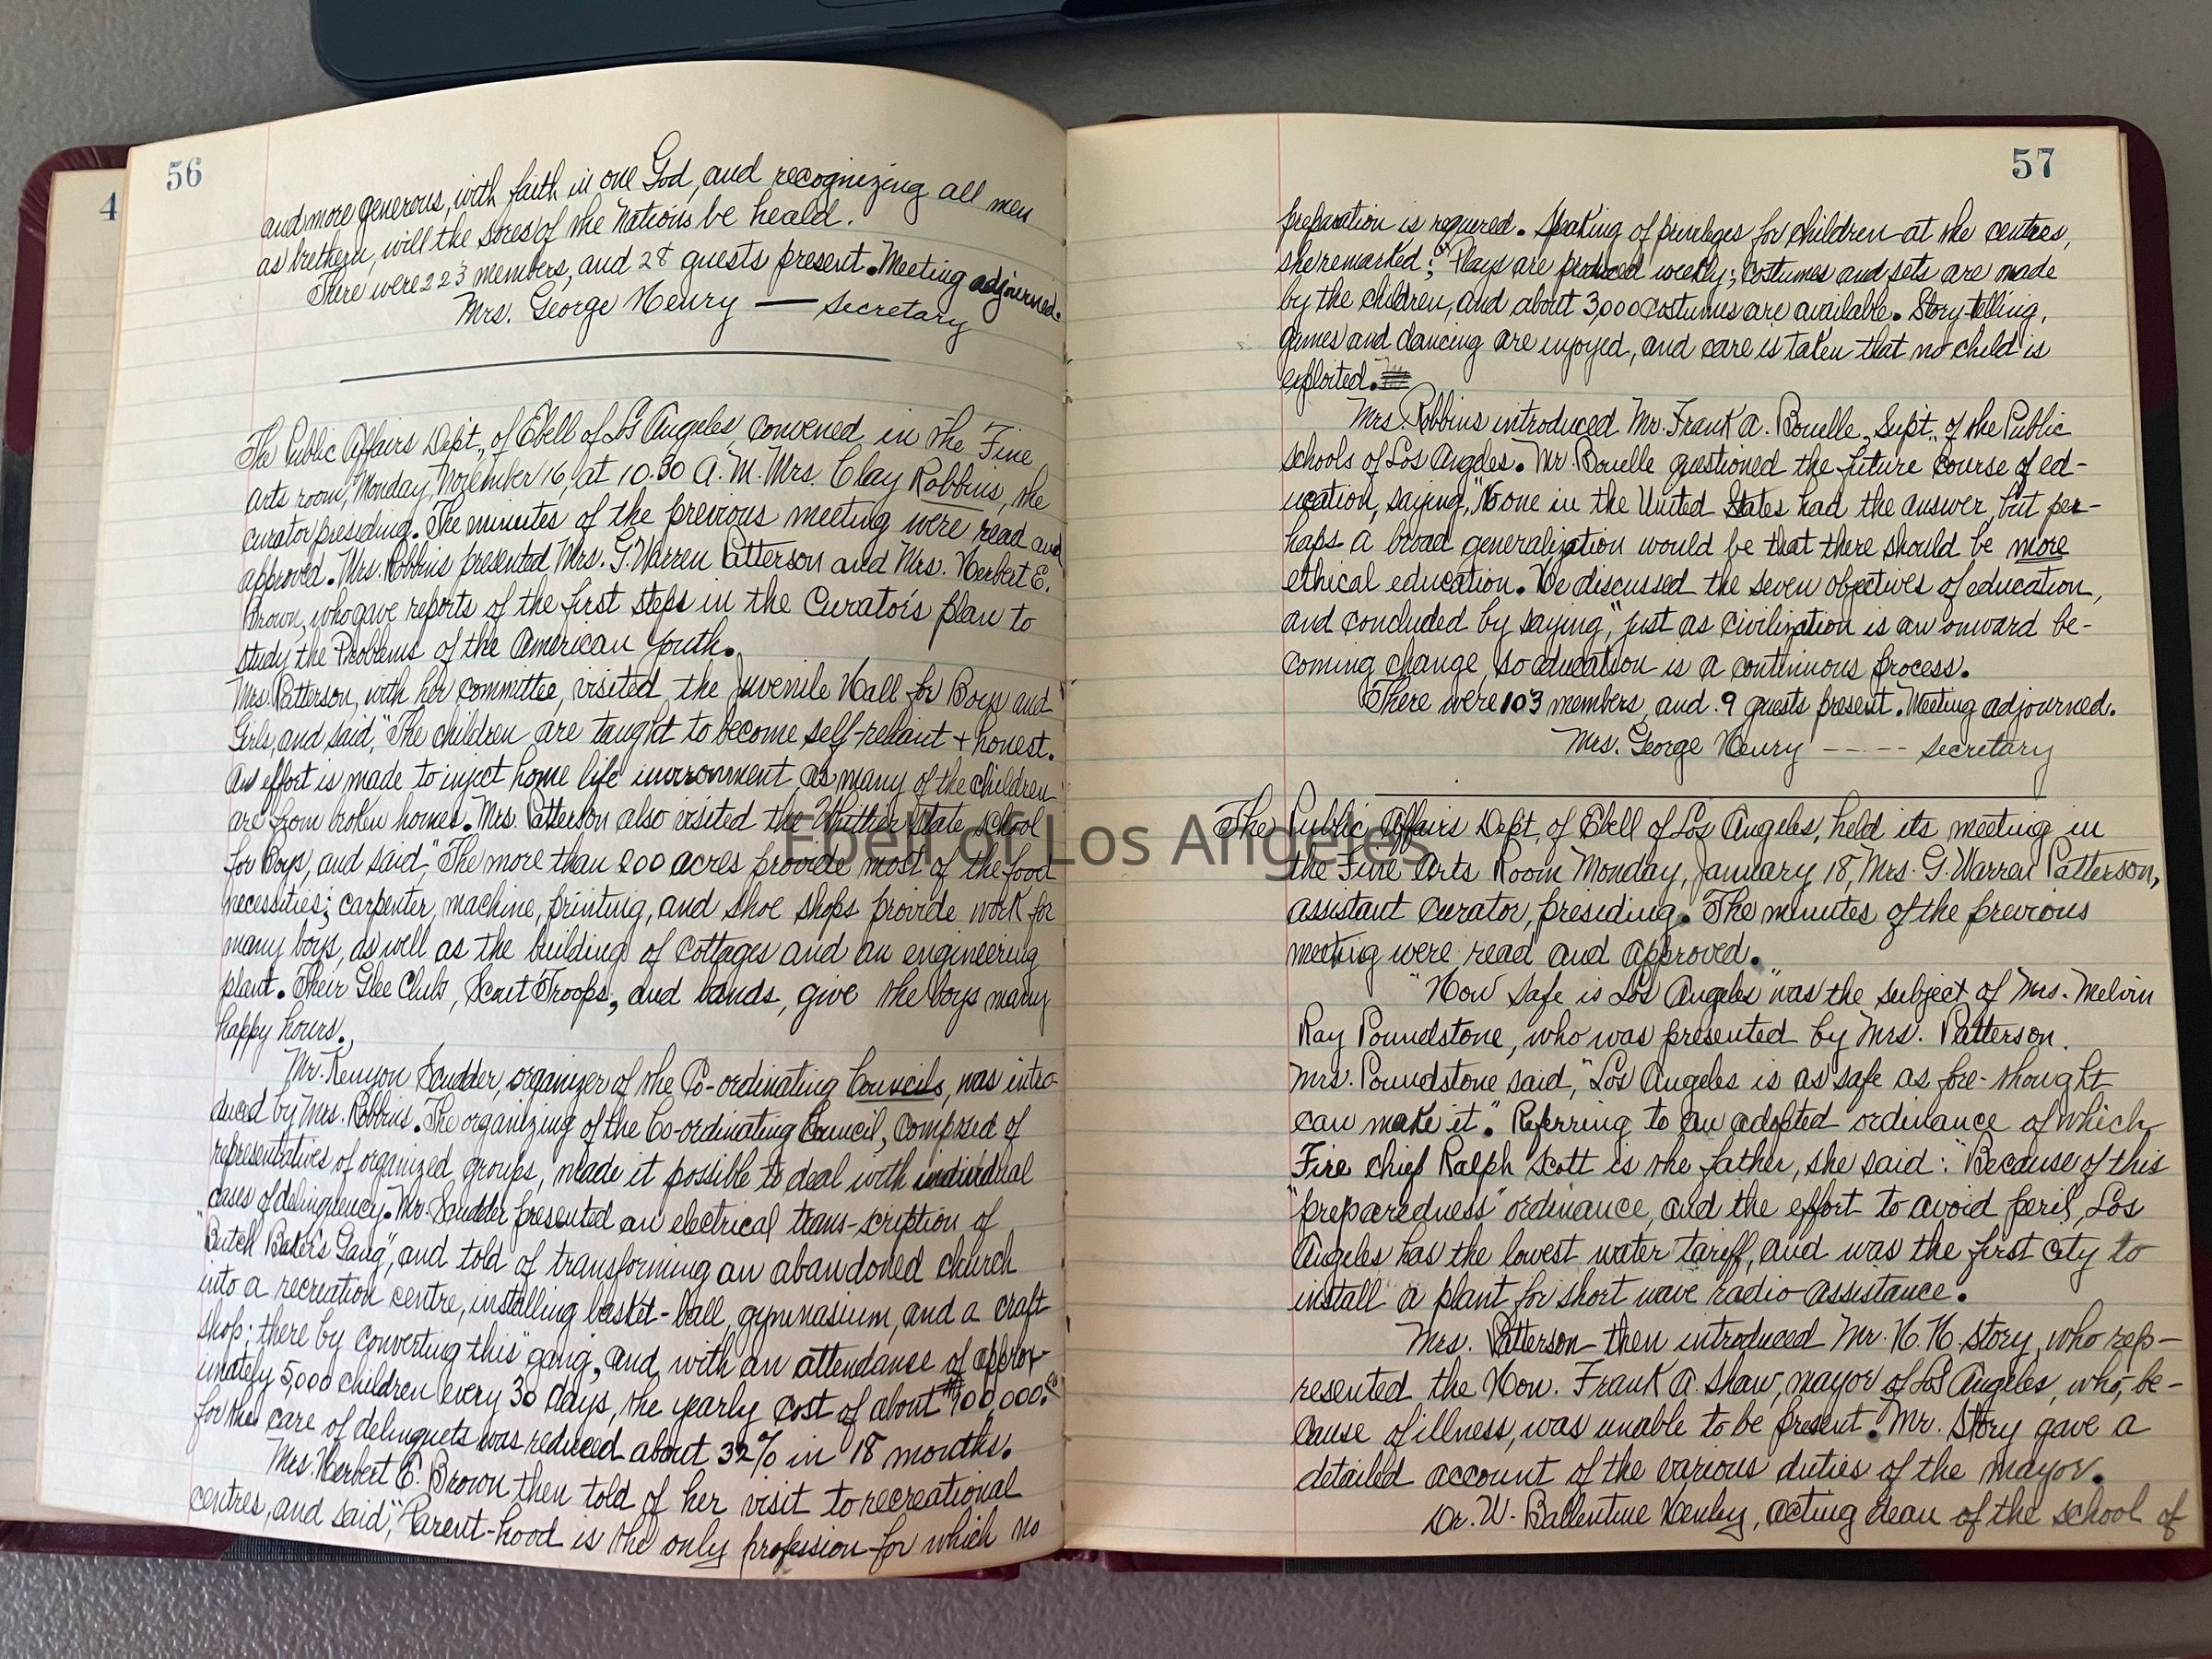 4
56
and more generous, with faith in one God, and recognizing all men
as brethern, will the sores of the Nations be heald.
There were 223 members, and 28 guests present. Meeting adjourned.
Mrs. George Henry — Secretary
The Public Affairs Dept., of Ebell of Los Angeles, convened in the Fine
Arts room, Monday, November 16, at 10.30 A.M. Mrs. Clay Robbins, the
curator presiding. The minutes of the previous meeting were read and
approved. Mrs. Robbins presented Mrs. G. Warren Patterson and Mrs. Herbert E.
Brown, who gave reports of the first steps in the Curator's plan to
study the Problems of the American Youth.
Mrs. Patterson, with her committee, visited the Juvenile Hall for Boys and
Girls, and said, "The children are taught to become self-reliant + honest.
An effort is made to inject home life invironment, as many of the children
are from broken homes. Mrs. Patterson also visited the Whittier State school
for Boys, and said, "The more than 200 acres provide most of the food
necessities; carpenter, machine, printing, and shoe shops provide work for
many boys, as well as the building of cottages and an engineering
plant. Their Glee Club, Scout Troops, and bands, give the boys many
happy hours.
Mr. Kenyon Scudder, organizer of the Co-ordinating Councils, was intro-
duced by Mrs. Robbins. The organizing of the Co-ordinating Council, composed of
representatives of organized groups, made it possible to deal with individual
cases of delinquency. Mr. Scudder presented an electrical trans-scription of
"Butch Baker's Gang", and told of transforming an abandoned church
into a recreation centre, installing basket-ball, gymnasium, and a craft
shop; there by converting this "gang", and, with an attendance of approx-
imately 5,000 children every 30 days, the yearly cost of about $
for the care of delinquets was reduced about 32% in 18 months.
Mrs. Herbert E. Brown then told of her visit to recreational
centres, and said, "Parent-hood is the only profession for which no
57
preparation is required. Speaking of privileges for children at the centres,
she remarked: "Plays are produced weekly; costumes and sets are made
by the children, and about 3,000 costumes are available. Story-telling,
games and dancing are enjoyed, and care is taken that no child is
exploited.
Mrs. Robbins introduced Mr. Frank A. Bouelle, Supt., of the Public
schools of Los Angeles. Mr. Bouelle questioned the future course of ed-
ucation, saying, "No one in the United States had the answer, but per-
haps a broad generalization would be that there should be more
ethical education. He discussed the seven objectives of education,
and concluded by saying, "just as civilization is an onward be-
coming change, so education is a continuous process.
There were 103 members, and 9 guests present. Meeting adjourned.
Mrs. George Henry ----- Secretary
The Public Affairs Dept, of Ebell of Los Angeles, held its meeting in
the Fine Arts Room Monday, January 18, Mrs. G. Warren Patterson,
assistant curator, presiding. The minutes of the previous
meeting were read and approved.
"How Safe is Los Angeles" was the subject of Mrs. Melvin
Ray Poundstone, who was presented by Mrs. Patterson.
Mrs. Poundstone said, "Los Angeles is as safe as fore-thought
can make it." Referring to an adopted ordinance of which
Fire chief Ralph Scott is the father, she said: "Because of this
"preparedness" ordinance, and the effort to avoid peril, Los
Angeles has the lowest water tariff, and was the first city to
install a plant for short wave radio-assistance.
Mrs. Patterson then introduced Mr. H. H. Story, who rep-
resented the Hon. Frank A. Shaw, mayor of Los Angeles, who, be-
cause of illness, was unable to be present. Mr. Story gave a
detailed account of the various duties of the mayor.
Dr. W. Ballentine Henley, acting dean of the school of
Ebell of Los Angeles